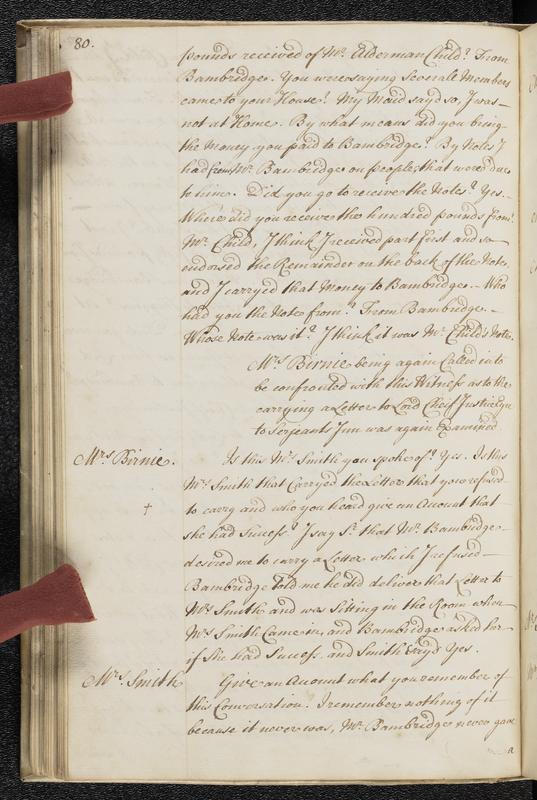 80.
pounds received of Mr. Alderman Child? From
Bambridge. You were saying Severale Members
came to your House? My Maid sayd so, I was
not at Home. By what means did you bring
the Money you paid to Bambridge? By Notes I
had from Mr. Bambridge on people, that were due
to him. Did you go to receive the Notes? Yes.
Where did you receive the hundred pounds from?
Mr. Child, I think I received part first and so
endorsed the Remainder on the back of the Note,
and I carryed that Money to Bambridge. Who
had you the Notes from? From Bambridge.
Whose Note was it? I think it was Mr. Childs Note.
Mrs. Birnie being again Called in to
be confronted with this Witness as to the
carrying a Letter to Lord Cheif Justice Eyre
to Serjeants Inn was again Examined
Mrs Birnie.
Is this Mrs. Smith you spoke of? Yes. Is this
Mrs. Smith that Carryed the Letter that you refused
to carry and who you heard give an Account that
she had Success? I say Sr. that Mr. Bambridge
desired me to carry a Letter which I refused
Bambridge told me he did deliver that Letter to
Mrs Smith and was sitting in the Room when
Mrs Smith Came in, and Bambridge asked her
if She had Success. and Smith sayd Yes.
Mrs. Smith
Give an Account what you remember of
this Conversation. I remember nothing of it
because it never was, Mr. Bambridge never gave
a